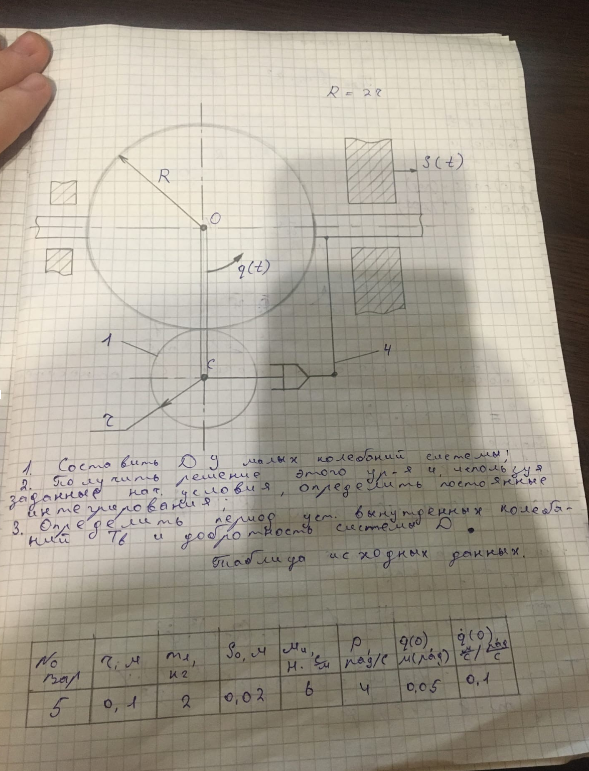 R = 2r
S(t)
R
O
q(t)
1
C
4
r
1. Составить ДУ малых колебаний системы;
2. Получить решение этого ур-я и, используя
заданные нач. условия, определить постоянные
интегрирования;
3. Определить период уст. вынужденных колеба-
ний Tв и добротность системы D.
Таблица исходных данных.
№ вар
r, м
m1, кг
S0, м
P, рад/с
q(0), м(рад)
q̇(0), м/с / рад/с
5
0,1
2
0,02
6
4
0,05
0,1